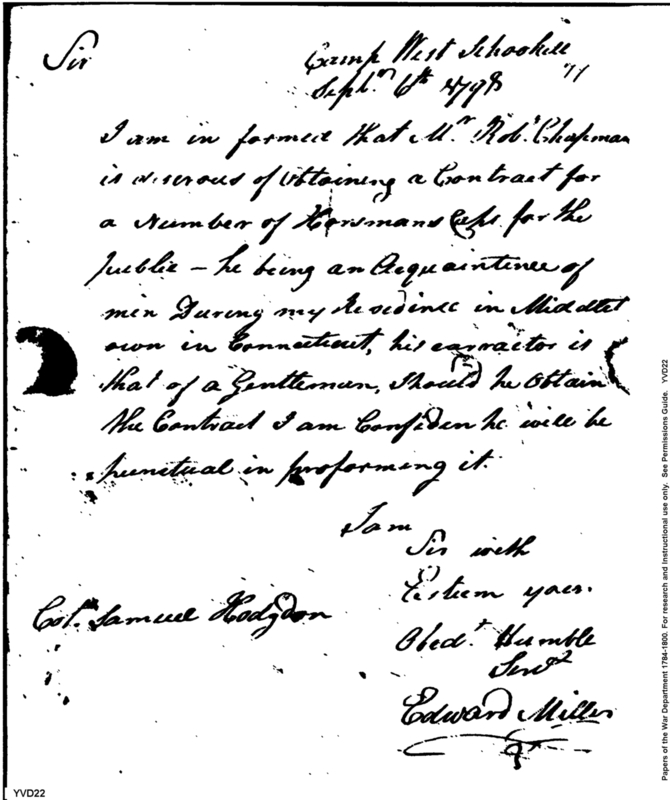 Sir
Camp West Schookill
Sepbr. 6th 1798
I am in formed that Mr. Robt. Chapman
is diserous of obtaining a Contract for
a Number of Horsmans Caps for the
public – he being an Acquaintince of
mien During my Residince in Middlet
own in Connecticut, his carractor is
that of a Gentleman, Should he Obtain
the Contract I am Confiden he will be
punctual in proforming it.
I am
Sir with
Esteem your.
Obedt. Humble
Servt
Edward Miller
Col. Samuel Hodgdon
YVD22
Papers of the War Department 1784-1800. For research and instructional use only. See Permissions Guide. YVD22